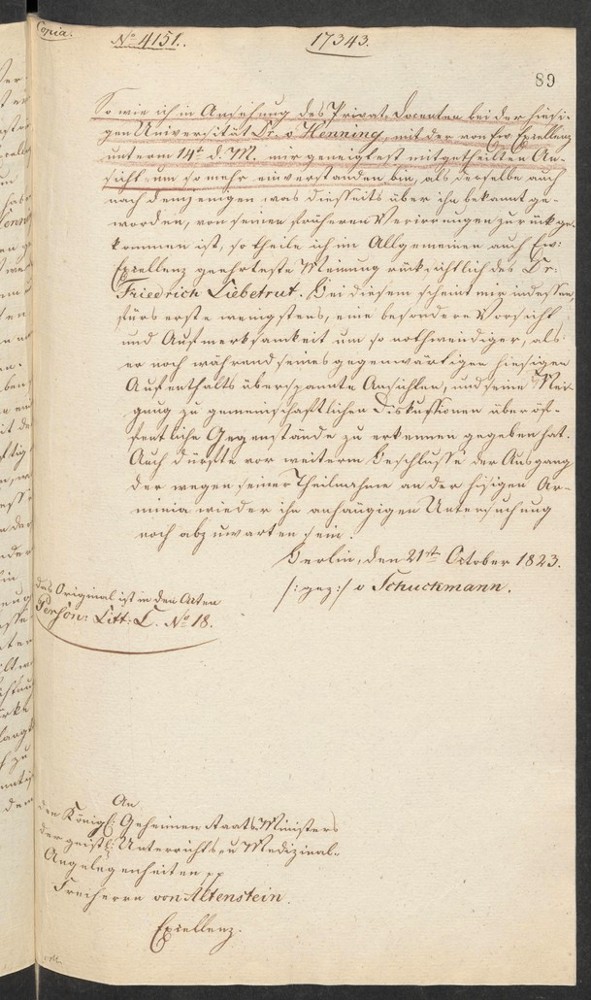 Copia.
No 4151.
17343.
89
So wie ich in Ansehung des Privat-Docenten bei der hiesi-
gen Universität Dr. v Henning, mit der von Ew Excellenz
unterm 14t d. M. mir geneigtest mitgetheilten An-
sicht um so mehr einverstanden bin, als derselbe auch
nach demjenigen was diesseits über ihn bekannt ge-
worden, von seinen früheren Verirrungen zurückge-
kommen ist, so theile ich im Allgemeinen auch Ew:
Excellenz geehrteste Meinung rücksichtlich des Dr:
Friedrich Liebetrut. Bei diesem scheint mir indessen
fürs erste wenigstens, eine besondere Vorsicht
und Aufmerksamkeit um so nothwendiger, als
er noch während seines gegenwärtigen hiesigen
Aufenthalts überspannte Ansichten, und seine Nei-
gung zu gemeinschaftlichen Diskussionen über öf-
fentliche Gegenstände zu erkennen gegeben hat.
Auch dürfte vor weiterm Beschlusse der Ausgang
der wegen seiner Theilnahme an der hisigen Ar-
minia wieder ihn anhängigen Untersuchung
noch abzuwarten sein.
Berlin, den 21st October 1823.
/:gez:/ v Schuckmann.
das Original ist in den Acten
Persön: Litt: L. No 18.
An
den Königl: Geheimen Staats Ministers
der geistl: Unterrichts- u Medizinal-
Angelegenheiten pp
Freiherrn von Altenstein.
Excellenz.